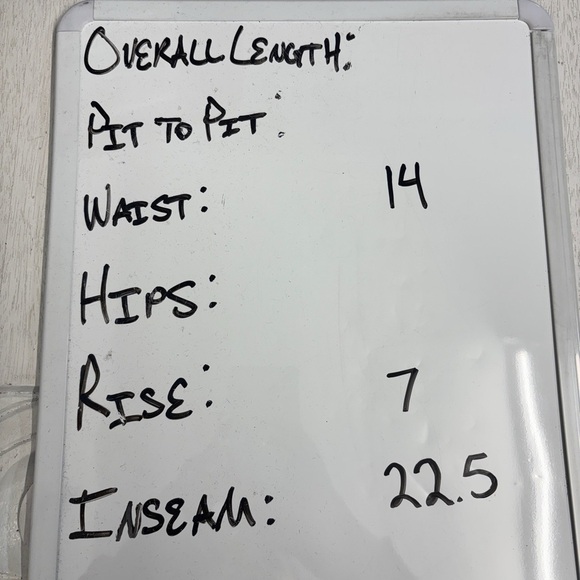 OVERALL LENGTH:
PIT TO PIT:
WAIST: 14
HIPS:
RISE: 7
INSEAM: 22.5